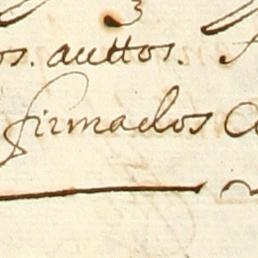 os. auttos.
firmados